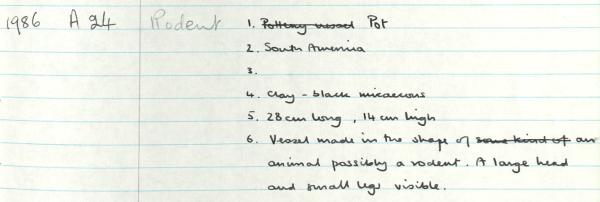 1986 A 24 Rodent 1. Pottery vessel Pot
2. South America
3.
4. Clay - black micaceous
5. 28cm long, 14 cm high
6. Vessel made in the shape of some kind of an
animal possibly a rodent. A large head
and small legs visible.